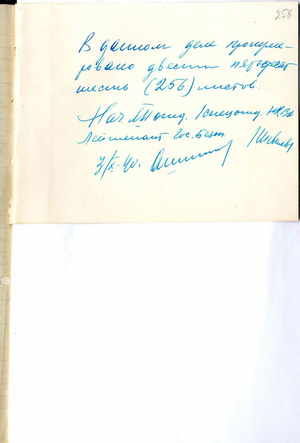 258
В данном деле пронуме-
ровано двести пятьдесят
шесть (256) листов.
Нач. отд. 1 спецотд. НКВД
Лейтенант Гос. Безоп.
3/IX-40.